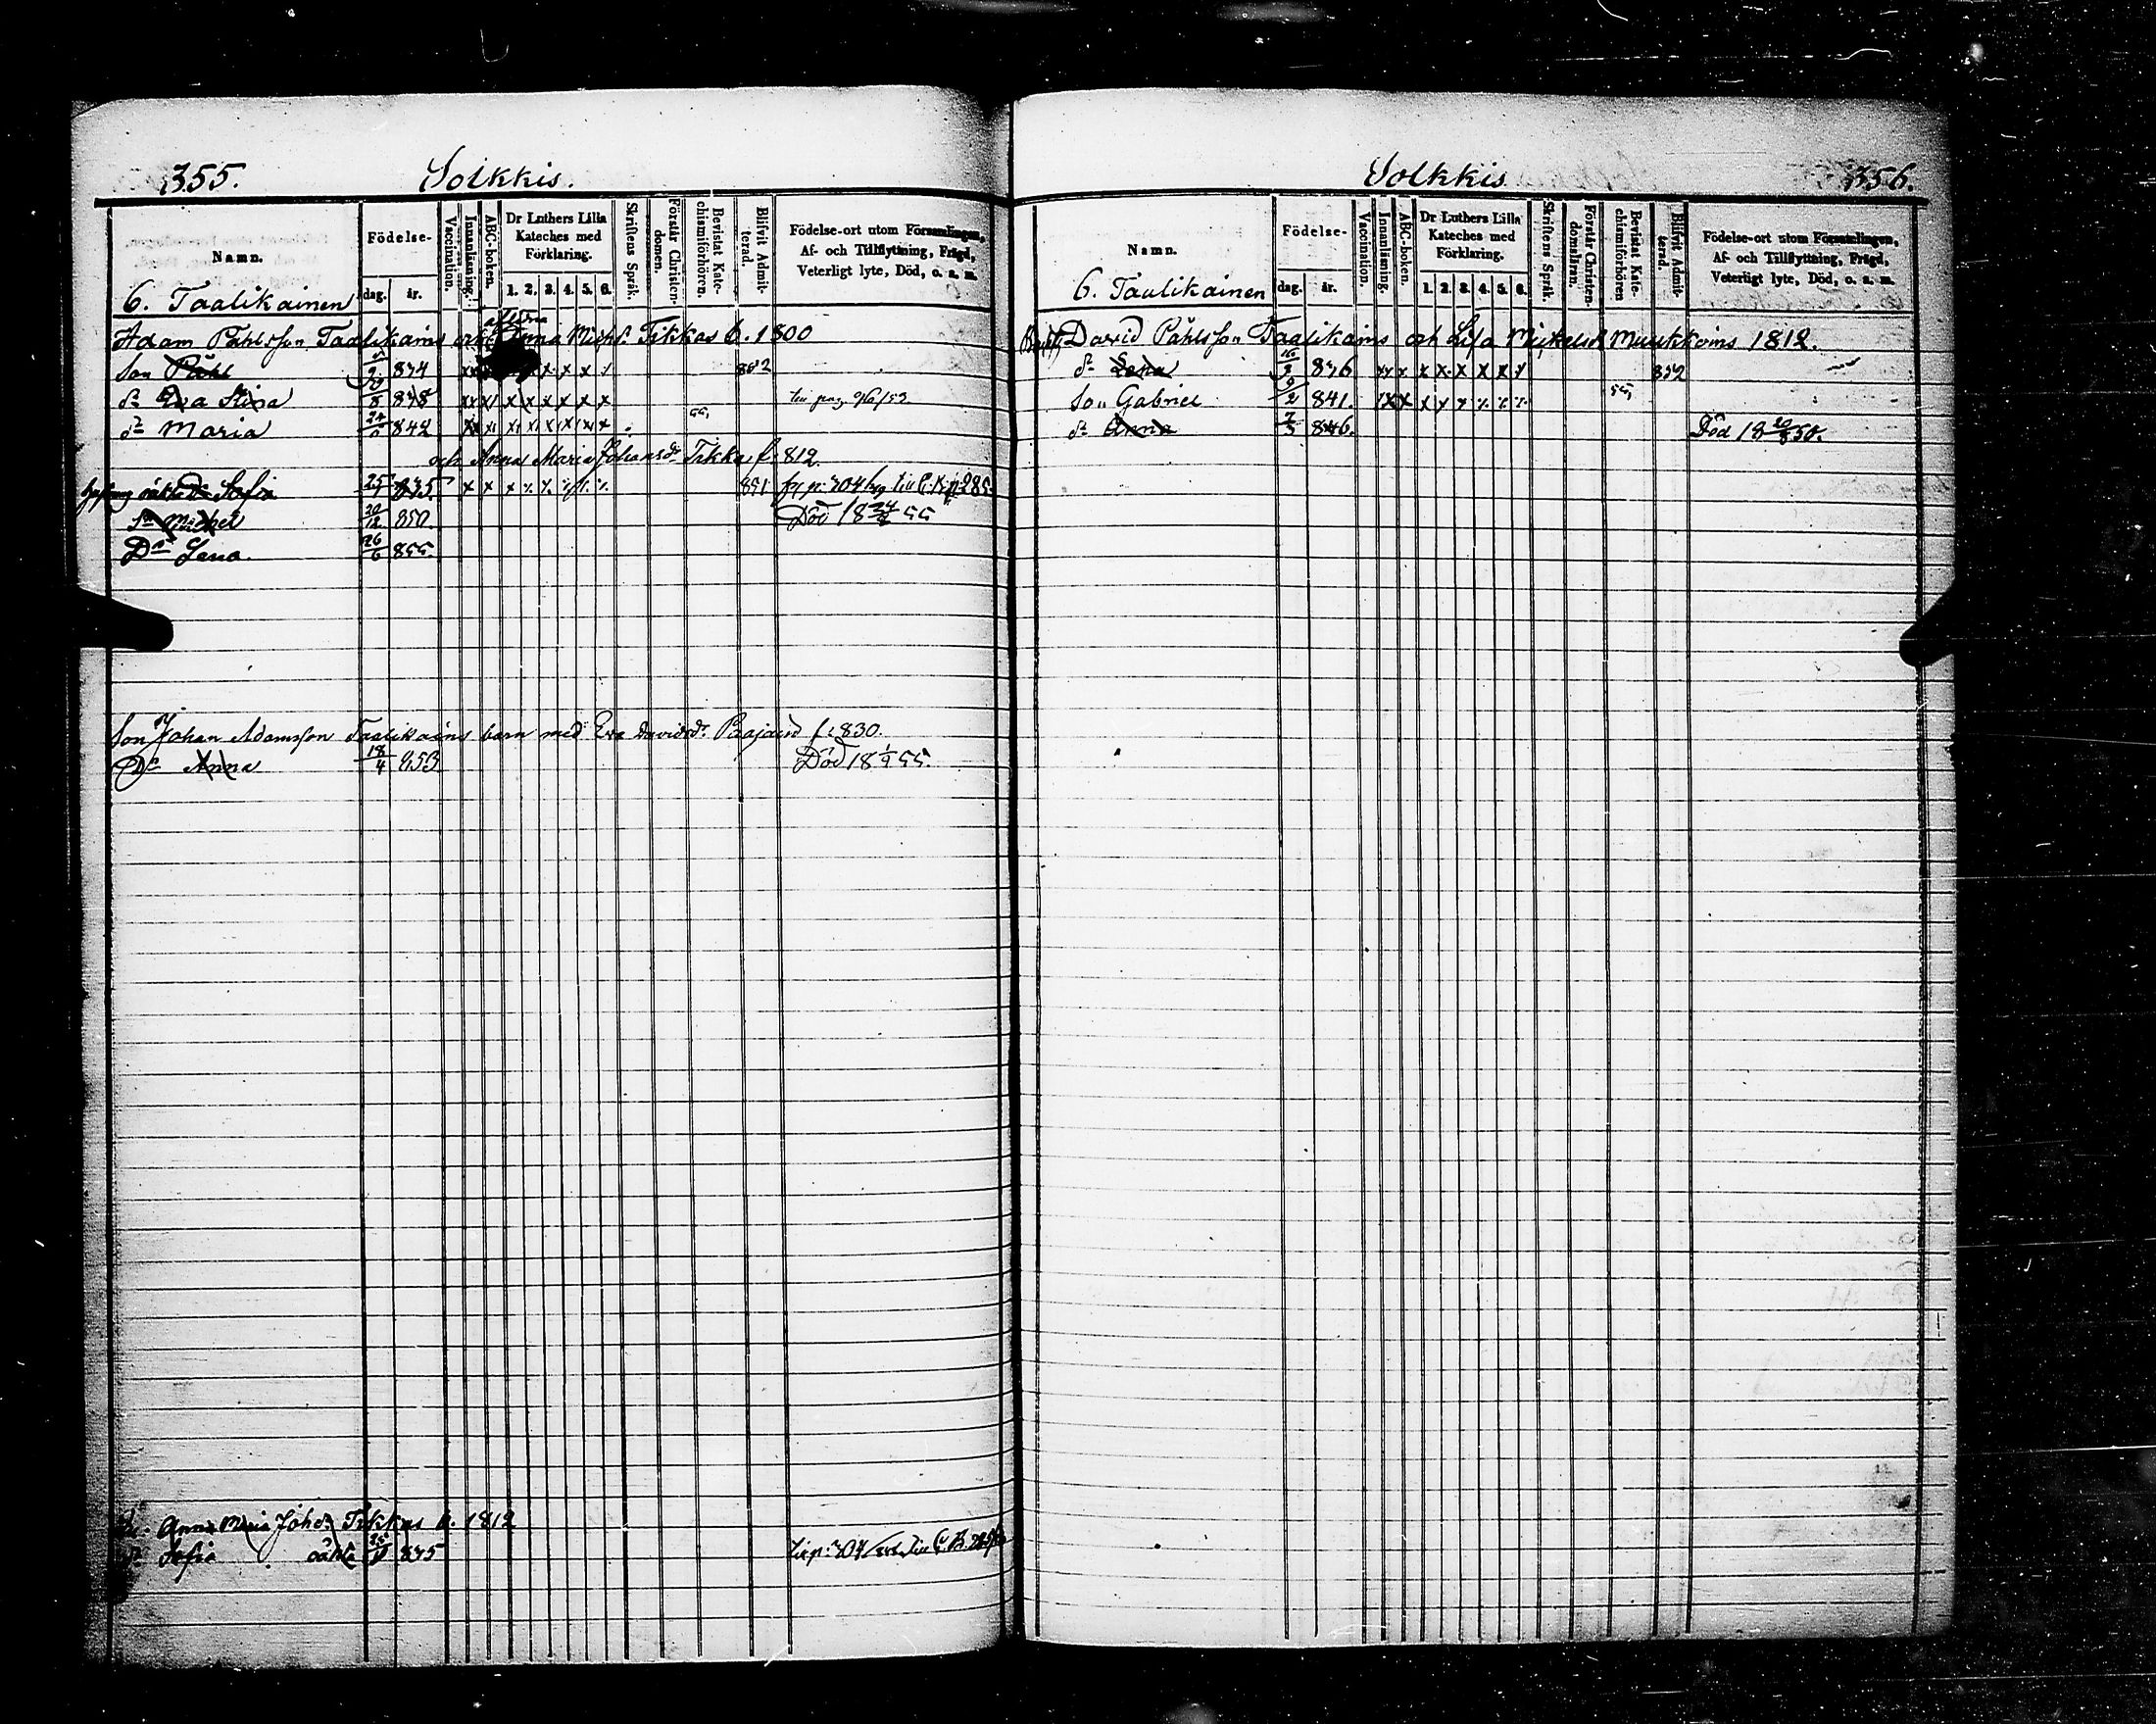 355.
Solkkis.
Namn.
Födelse-
dag.
år.
Vaccination.
Innanläsning.
ABC-boken.
Dr Luthers Lilla
Kateches med
Förklaring.
1. 2. 3. 4. 5. 6.
Skriftens Språk.
Förstår Christen-
domen.
Bevistat Kate-
chismiförhören.
Blifvit Admit-
terad.
Födelse-ort utom Församlingen,
Af- och Tillflyttning, Frägd,
Veterligt lyte, Död, o. s. m.
6. Taalikainen
Adam Påhlsson Taalikains Anna Michs. Tikkas 6. 1800
Son Påhl 834 x x x x 852
dr Eva Stina 838 x x x x x x x x
dr Maria 24 842 55,
och Anna Maria Johansdr Tikkas f. 812.
oäkta dr Sofia 25 835 x x x 851
Sn Michel 20/12 850 Död 18 24 55
Dr Lena. 26/6 855.
Son Johan Adamsson Taalikains barn med Eva Davidsdr f. 830.
Dr Anna 18/4 853 Död 18 1/9 55.
Anna Maria Johdr Tikkas 6. 1812
dr Sofia oäkta 25 835
Solkkis
356.
Namn.
Födelse-
dag.
år.
Vaccination.
Innanläsning.
ABC-boken.
Dr Luthers Lilla
Kateches med
Förklaring.
1. 2. 3. 4. 5. 6.
Skriftens Språk.
Förstår Christen-
domsläran.
Bevistat Kate-
chismiförhören
Blifvit Admit-
terad.
Födelse-ort utom Församlingen,
Af- och Tillflyttning, Frägd,
Veterligt lyte, Död, o. s. m.
6. Taalikainen
David Påhlsson Taalikains och Lisa Mickelsdr Muukkoins 1812.
dr Lena 16 836 xx x x x x x x x 852
Son Gabriel 9/2 841. x x x x 55,
dr Anna 7/3 846. Död 18 20/8 50.